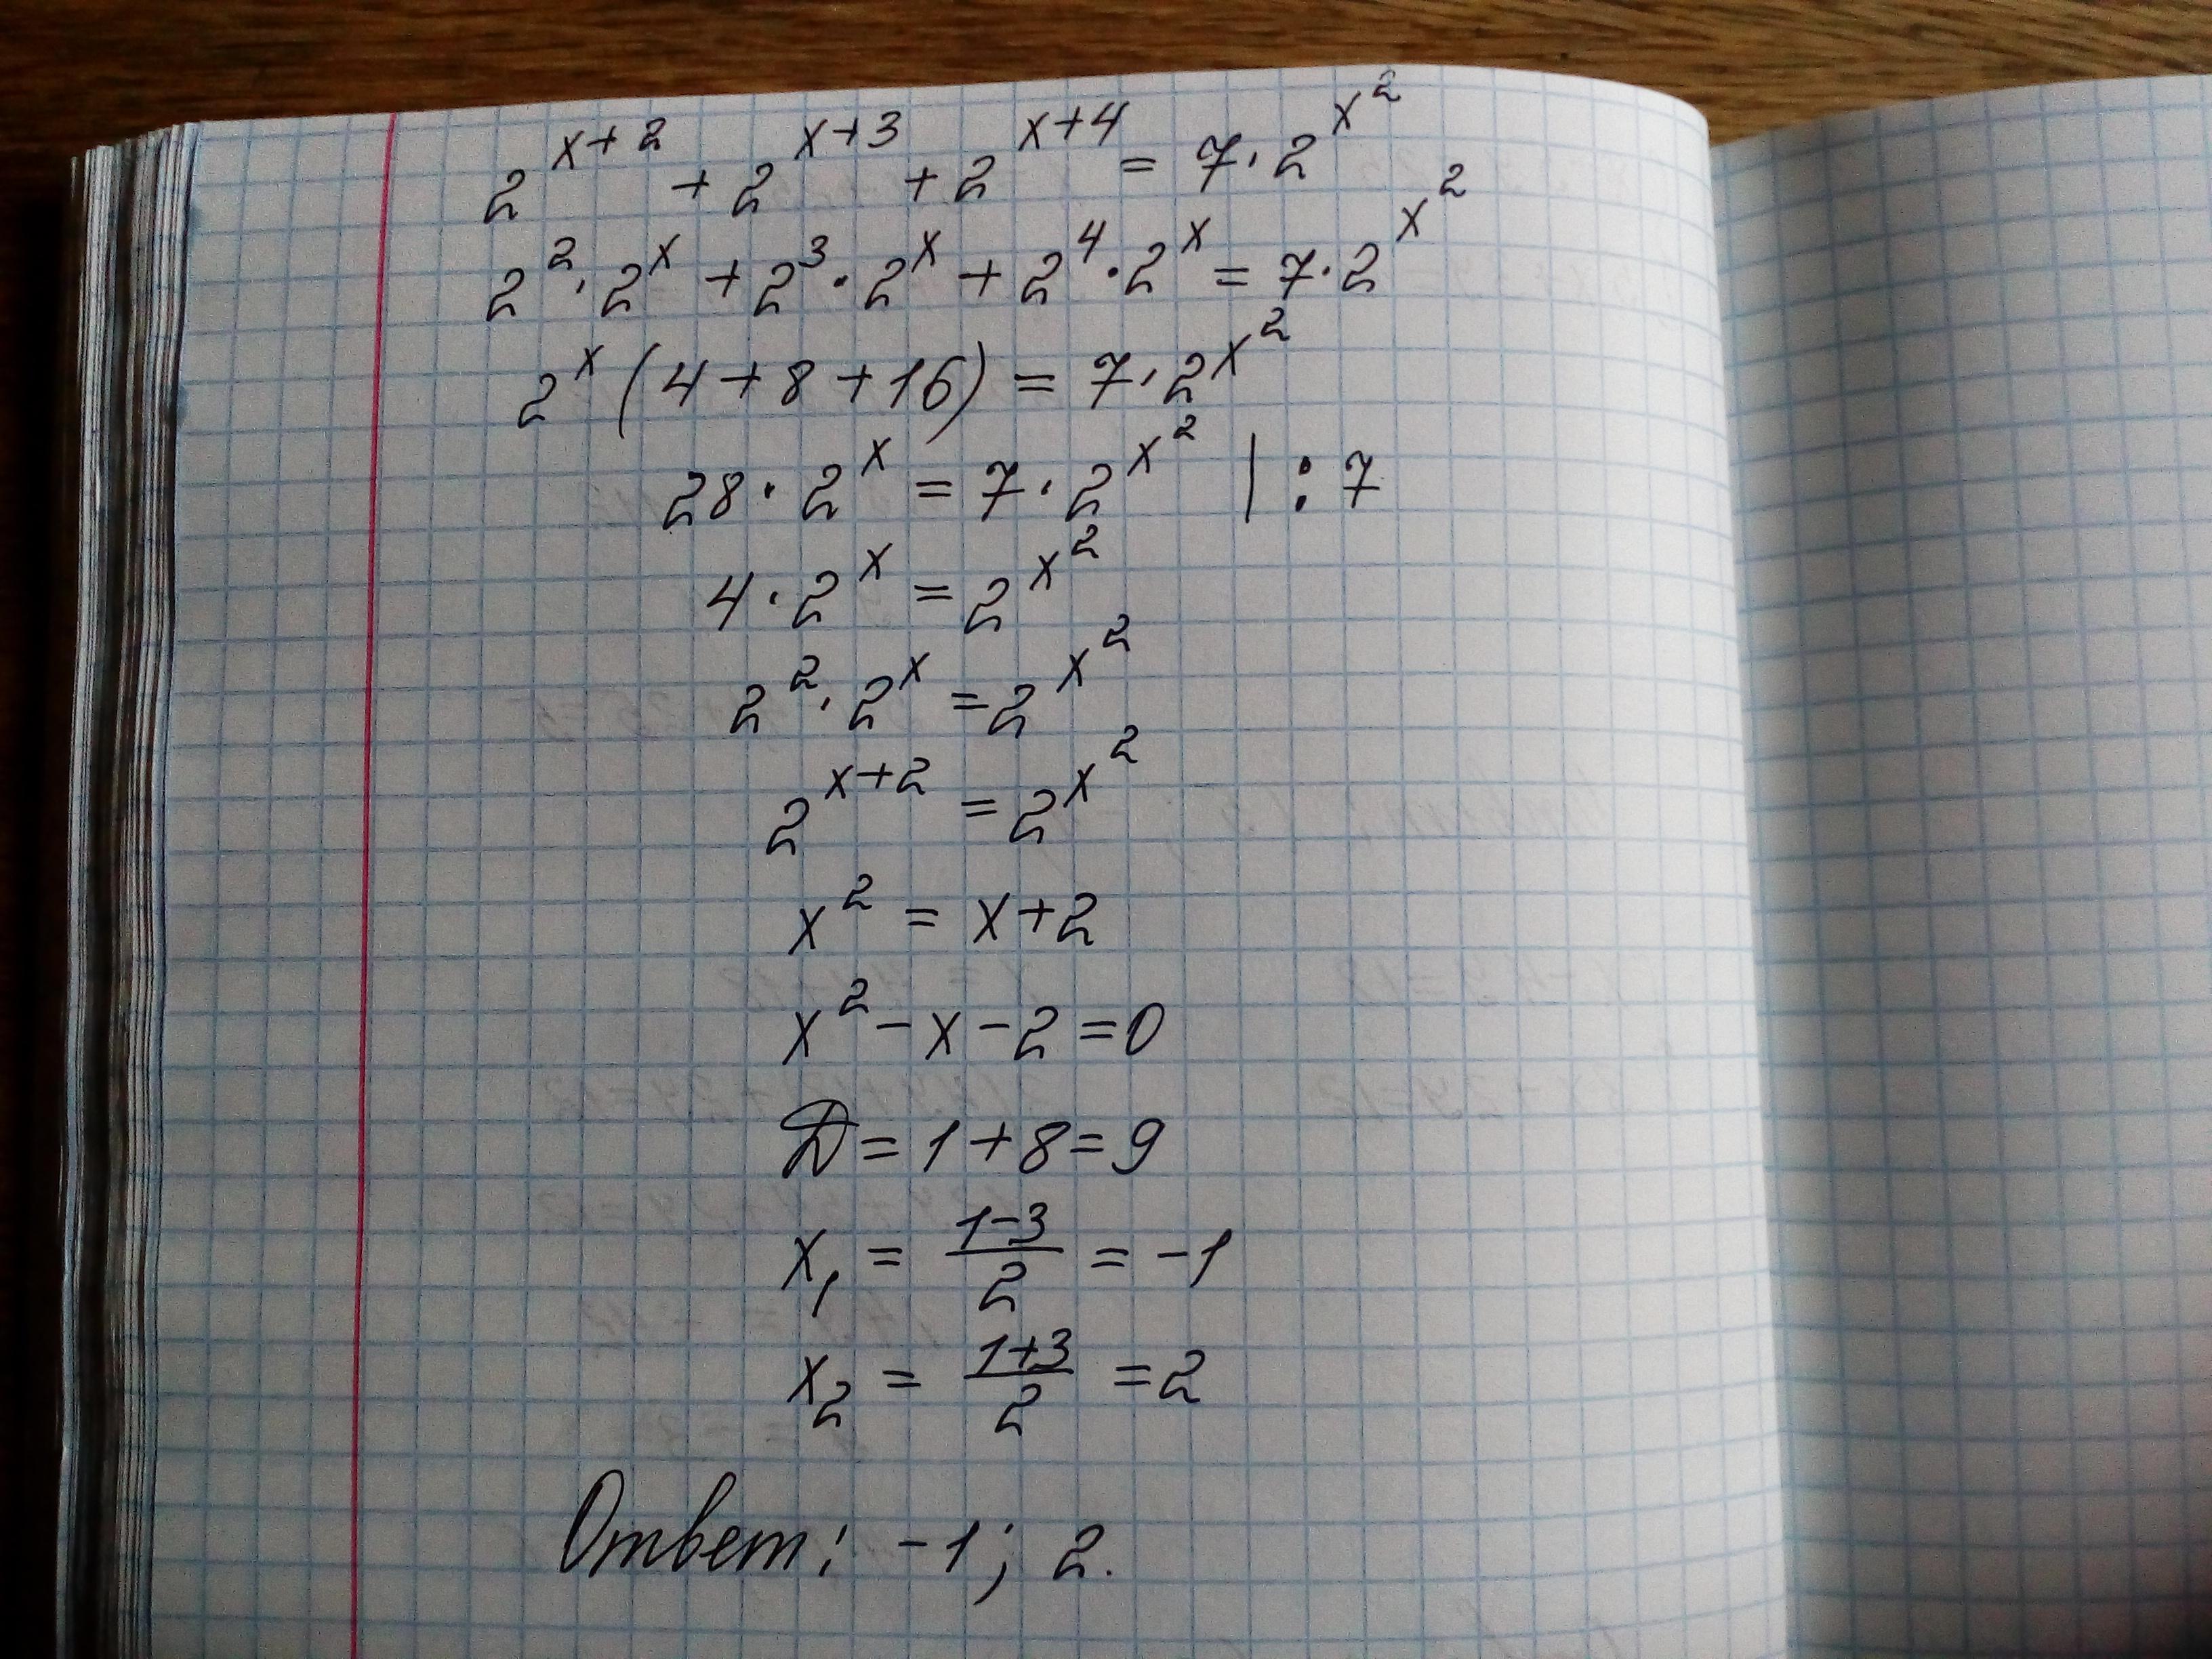 2^{x+2} + 2^{x+3} + 2^{x+4} = 7 · 2^{x^2}
2^2 · 2^x + 2^3 · 2^x + 2^4 · 2^x = 7 · 2^{x^2}
2^x (4 + 8 + 16) = 7 · 2^{x^2}
28 · 2^x = 7 · 2^{x^2} | : 7
4 · 2^x = 2^{x^2}
2^2 · 2^x = 2^{x^2}
2^{x+2} = 2^{x^2}
x^2 = x + 2
x^2 - x - 2 = 0
D = 1 + 8 = 9
x_1 = \frac{1-3}{2} = -1
x_2 = \frac{1+3}{2} = 2
Ответ: -1; 2.